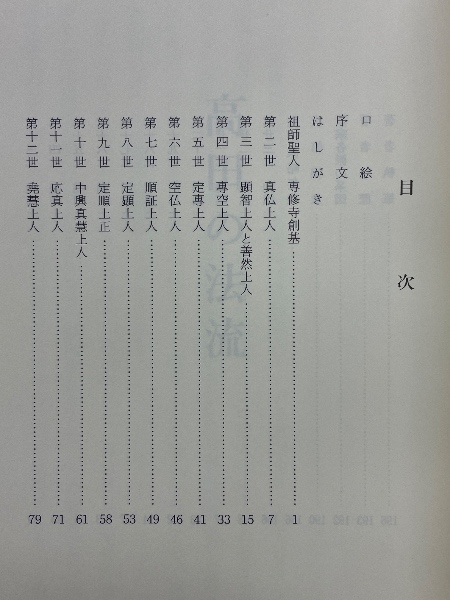 目次
口絵
序文
はしがき
祖師聖人 専修寺創基 1
第二世 真仏上人 7
第三世 顕智上人と善然上人 15
第四世 専空上人 33
第五世 定専上人 41
第六世 空仏上人 46
第七世 順証上人 49
第八世 定顕上人 53
第九世 定順上正 58
第十世 中興真慧上人 61
第十一世 応真上人 71
第十二世 堯慧上人 79
高田の法流